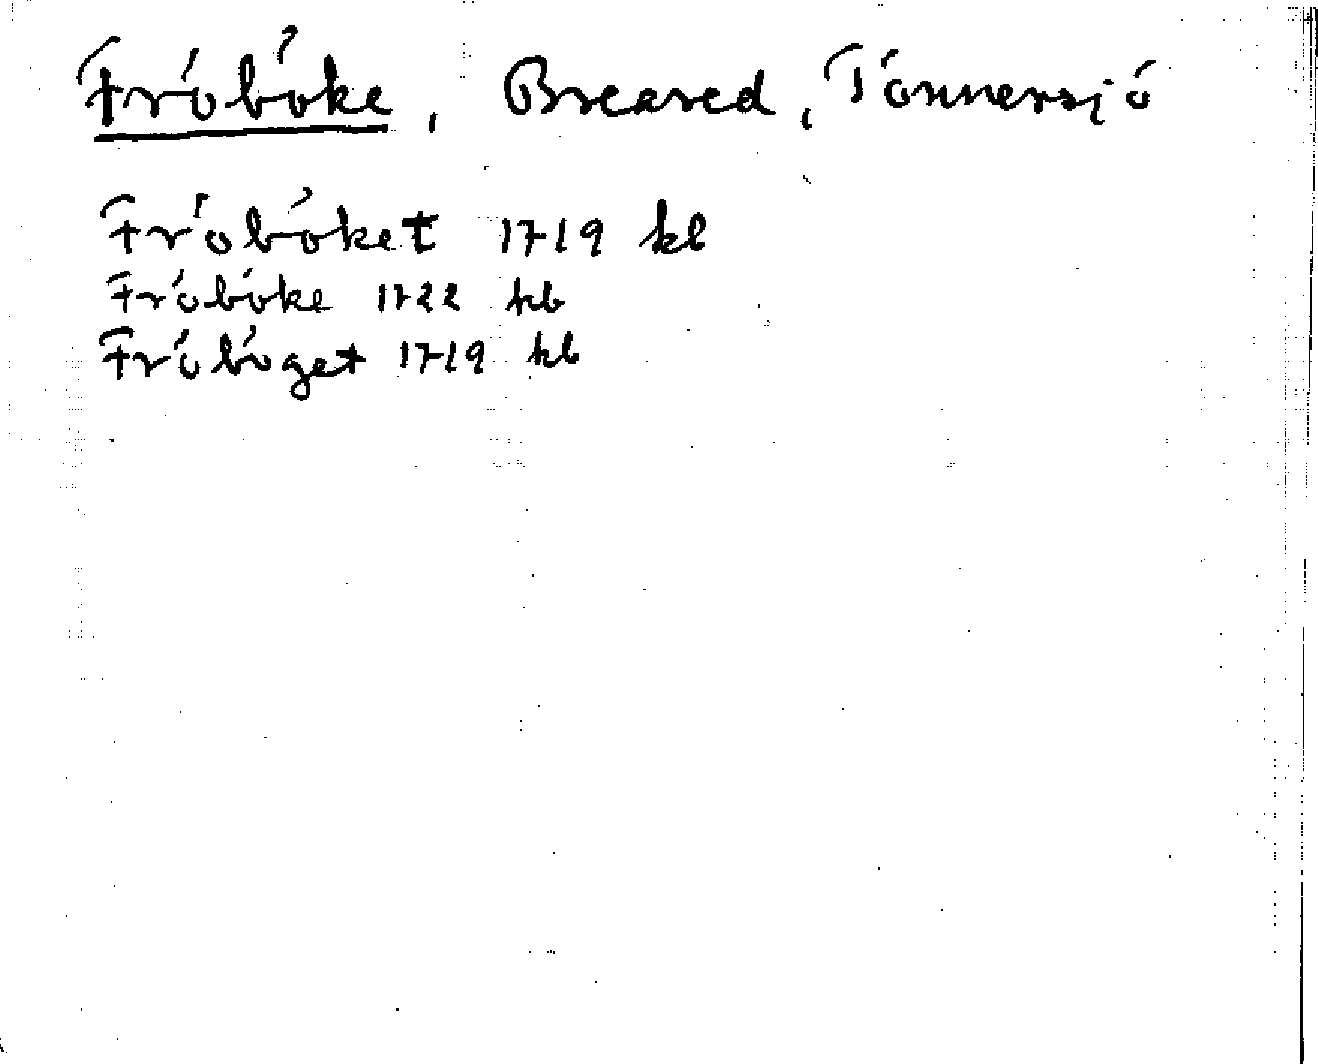 Fróbóke, Breared, Tónnersjó
Fróbóket 1719 kb
Fróbóke 1722 kb
Fróbóget 1719 kb